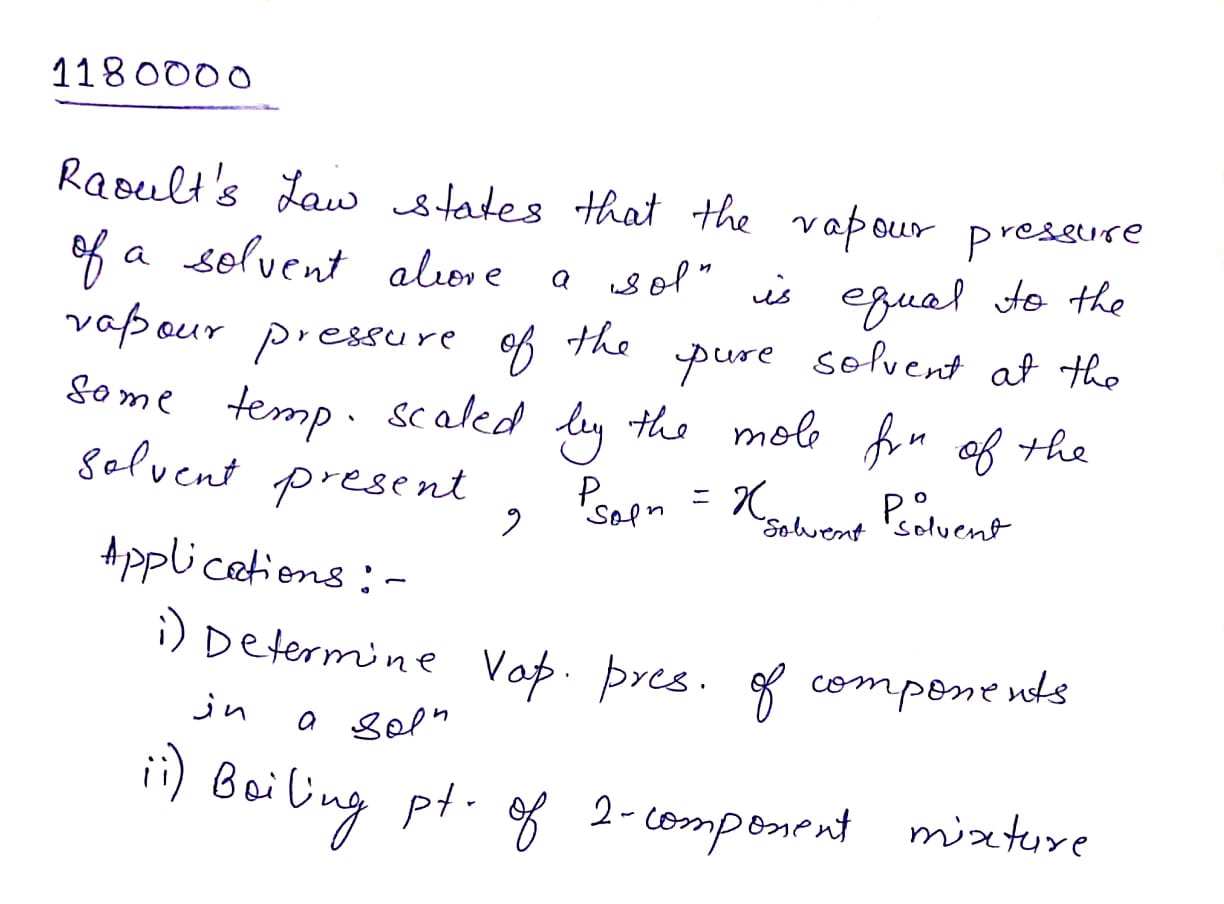 1180000
Raoult's Law states that the vapour pressure
of a solvent above a solⁿ is equal to the
vapour pressure of the pure solvent at the
same temp. scaled by the mole frⁿ of the
solvent present, Psoln = χsolvent P°solvent
Applications :-
i) Determine Vap. pres. of components
in a solⁿ
ii) Boiling pt. of 2-component mixture